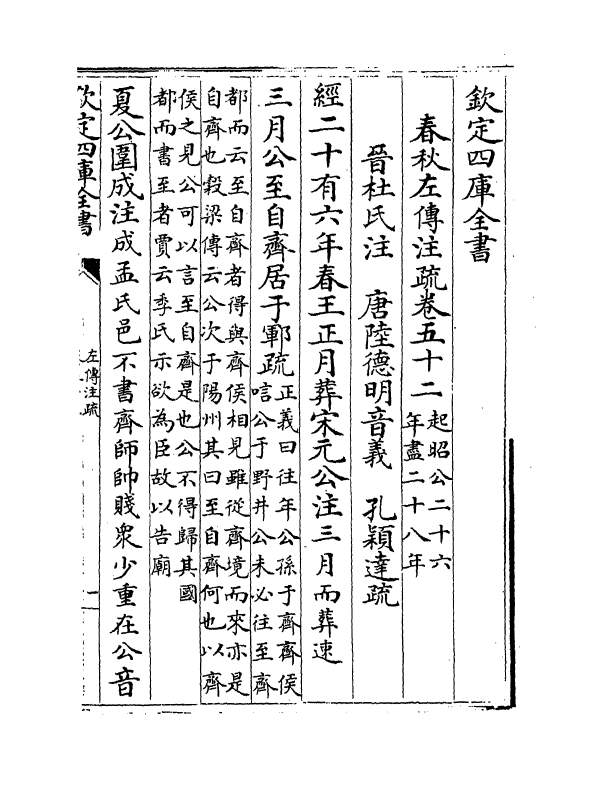 欽定四庫全書
春秋左傳注疏卷五十二起昭公二十六
年盡二十八年
晉杜氏注　唐陸德明音義　孔穎達疏
經二十有六年春王正月葬宋元公注三月而葬速
三月公至自齊居于鄆疏正義曰往年公孫于齊齊侯
唁公于野井公未必往至齊
都而云至自齊者得與齊侯相見雖從齊境而來亦是
自齊也穀梁傳云公次于陽州其曰至自齊何也以齊
侯之見公可以言至自齊是也公不得歸其國
都而書至者賈云季氏示欲為臣故以告廟
夏公圍成注成孟氏邑不書齊師帥賤衆少重在公音
欽定四庫全書
左傳注疏
一